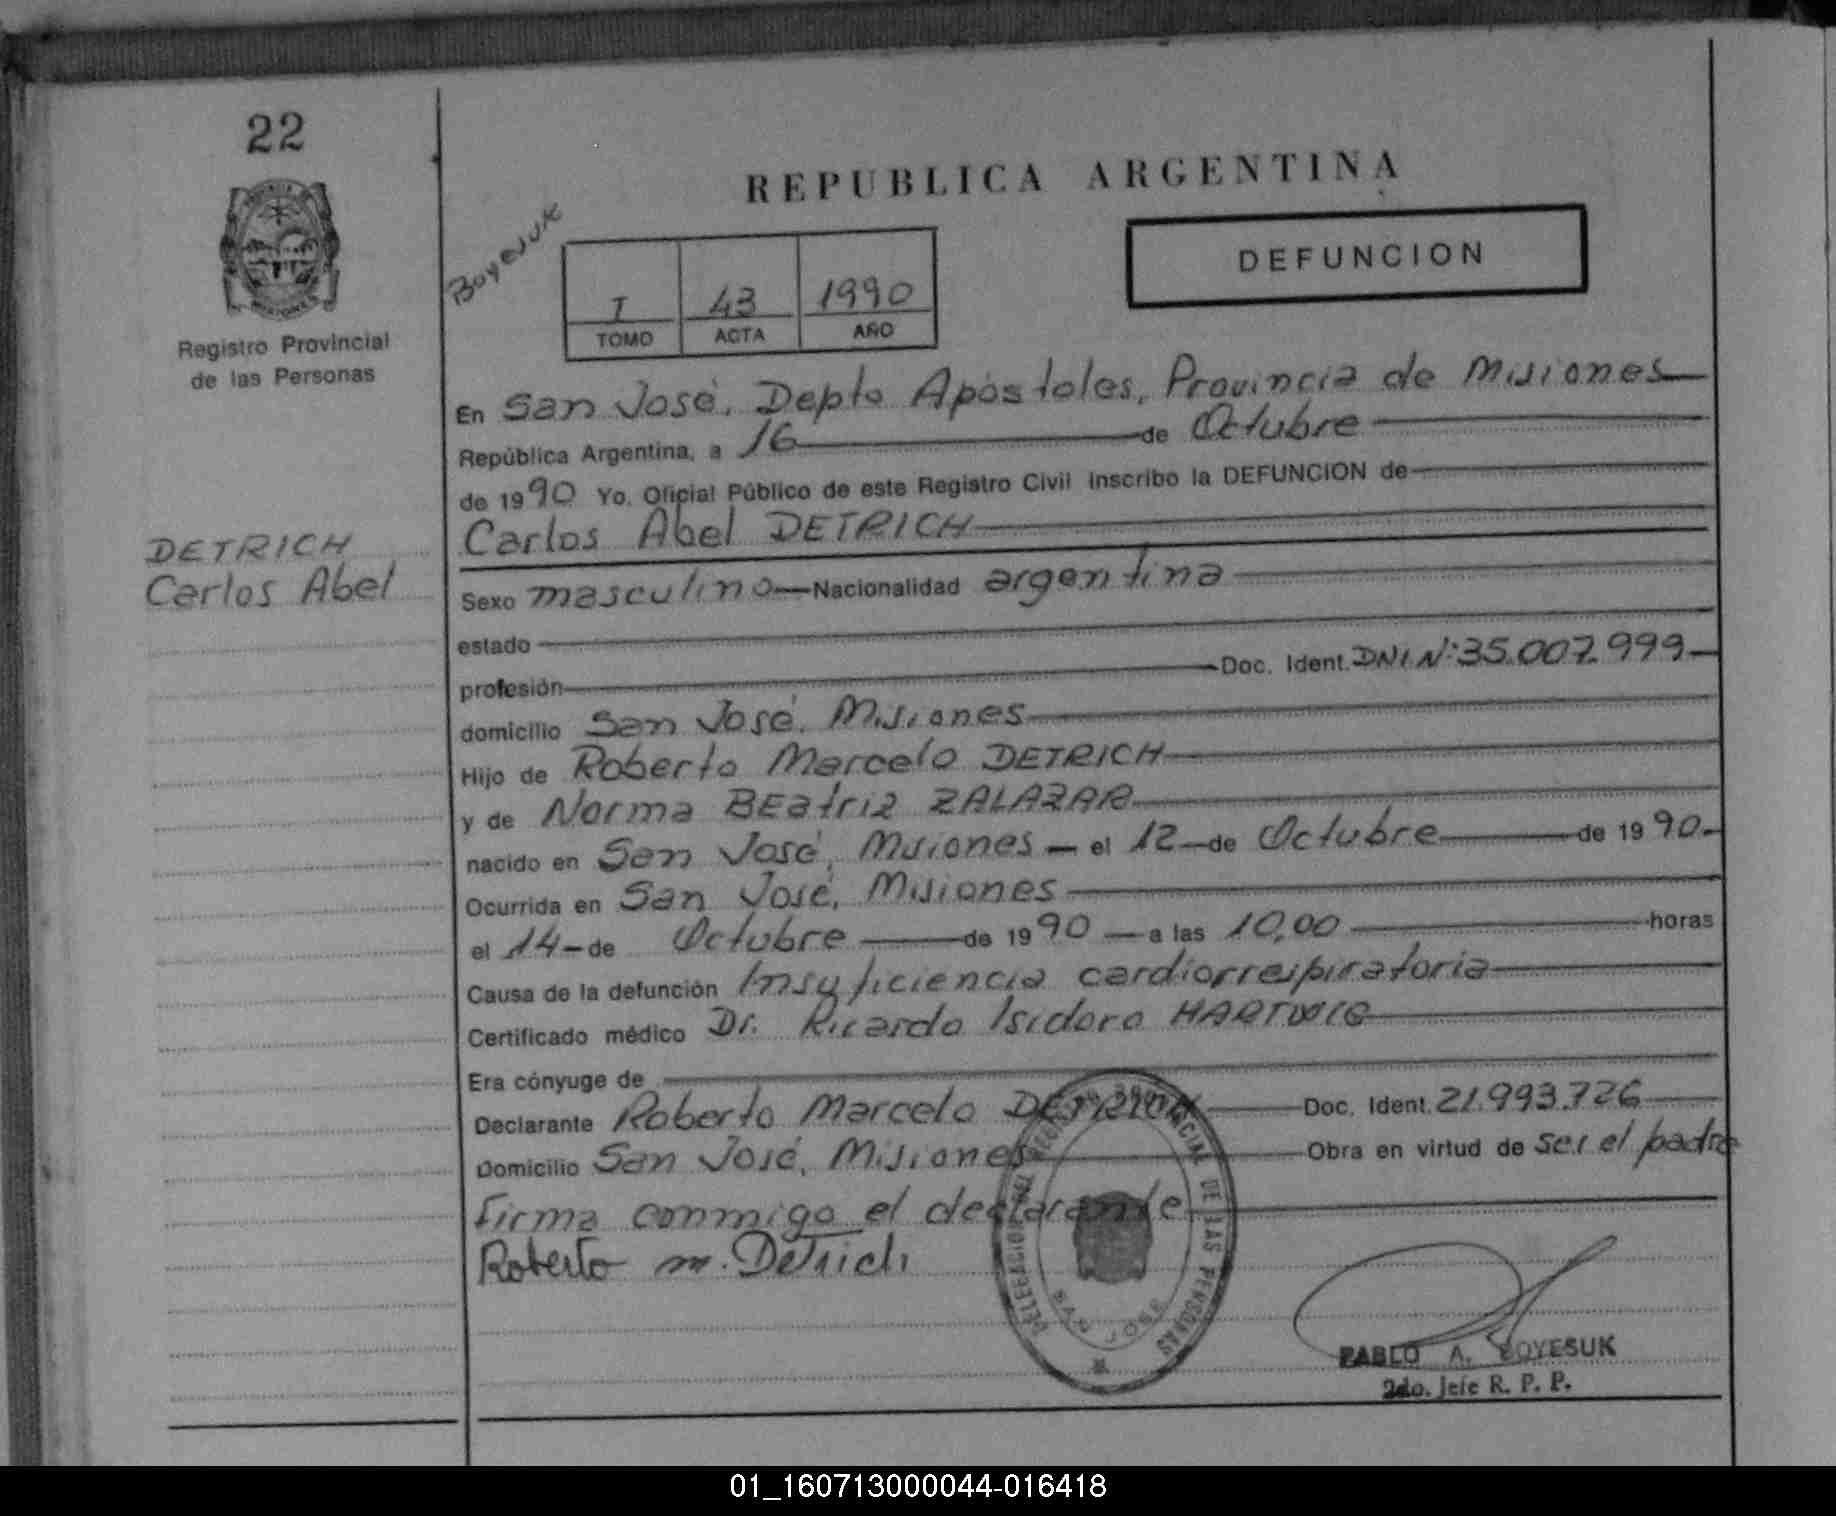 22
REPUBLICA ARGENTINA
Boyesuk
DEFUNCION
I 43 1990
TOMO ACTA AÑO
Registro Provincial
de las Personas
En San José, Depto Apóstoles, Provincia de Misiones
República Argentina, a 16 de Octubre
de 1990 Yo, Oficial Público de este Registro Civil inscribo la DEFUNCION de
DETRICH
Carlos Abel
Carlos Abel DETRICH
Sexo masculino Nacionalidad argentina
estado
profesión Doc. Ident. DNI N: 35.007.999
domicilio San José, Misiones
Hijo de Roberto Marcelo DETRICH
y de Norma BEatriz ZALAZAR
nacido en San José, Misiones el 12 de Octubre de 1990
Ocurrida en San José, Misiones
el 14 de Octubre de 1990 a las 10,00 horas
Causa de la defunción Insuficiencia cardiorrespiratoria
Certificado médico Dr. Ricardo Isidoro HARTWIG
Era cónyuge de
Declarante Roberto Marcelo DETRICH Doc. Ident. 21.993.726
Domicilio San José, Misiones Obra en virtud de ser el padre
Firma conmigo el declarante
Roberto M. Detrich
DELEGACION DEL REGISTRO PROVINCIAL DE LAS PERSONAS
SAN JOSE
PABLO A. BOYESUK
2do. Jefe R. P. P.
01_160713000044-016418